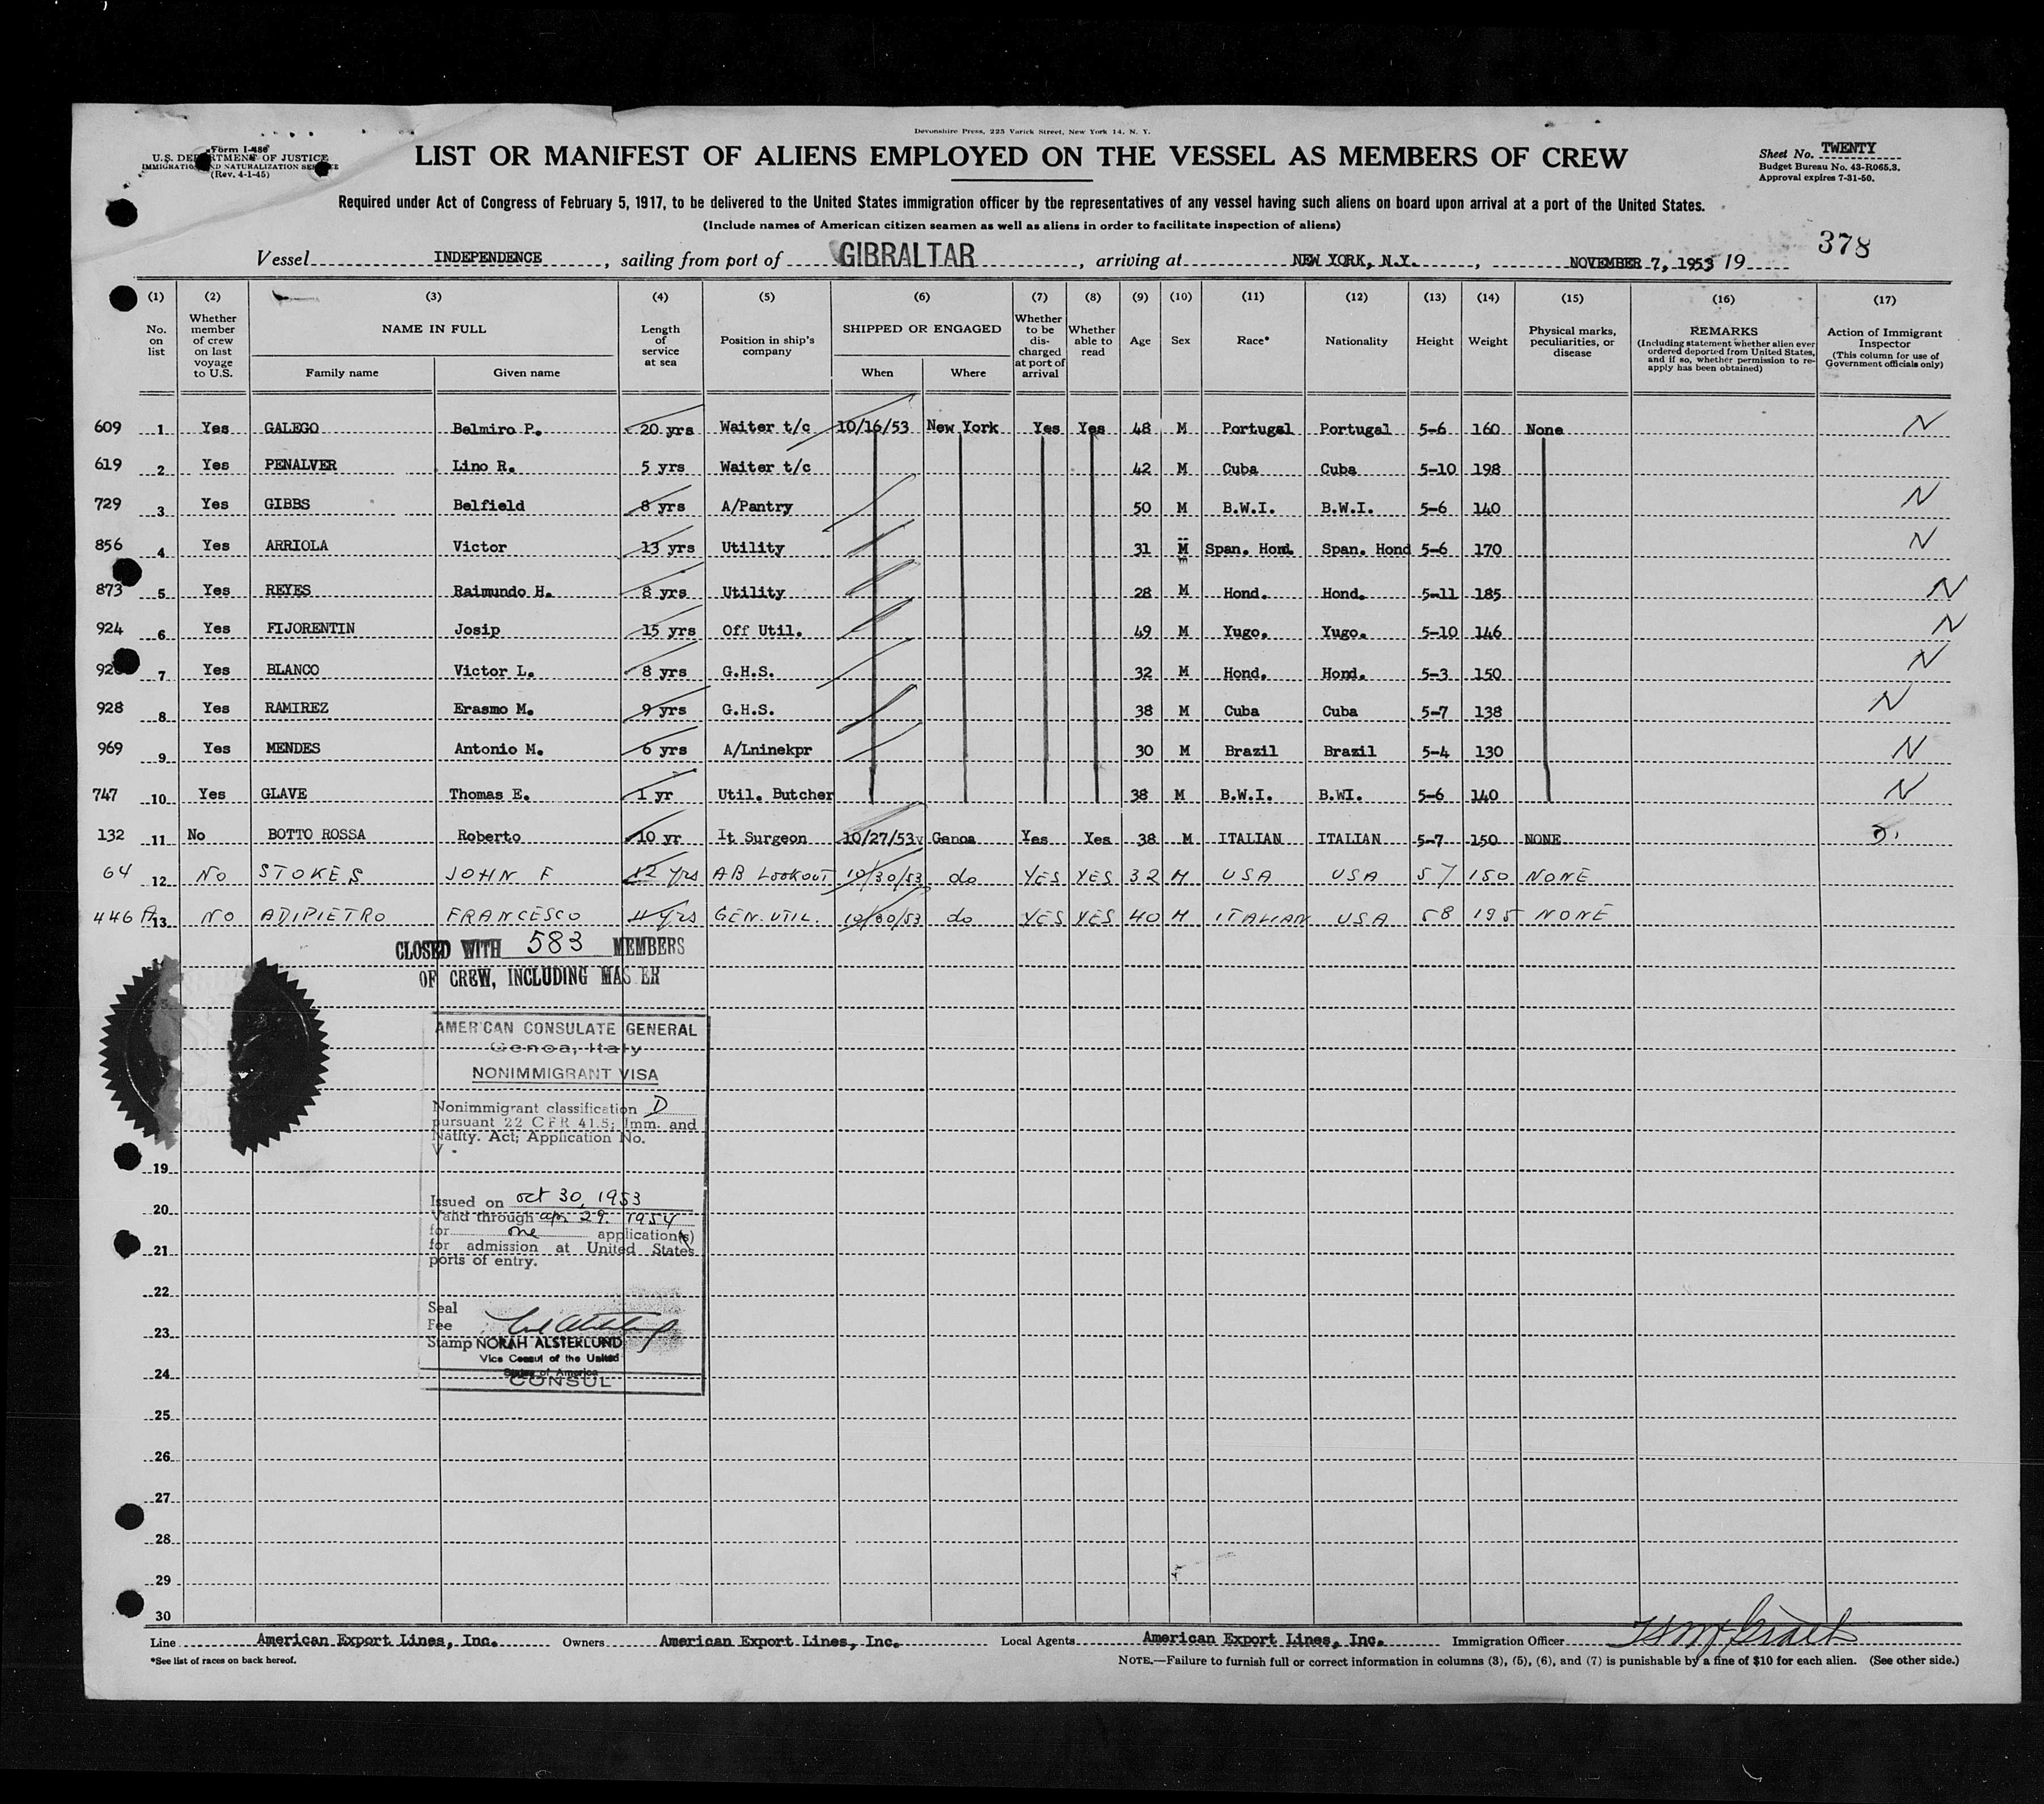 Devonshire Press, 225 Varick Street, New York 14, N. Y.
Form I-486
U.S. DEPARTMENT OF JUSTICE
IMMIGRATION AND NATURALIZATION SERVICE
(Rev. 4-1-45)
LIST OR MANIFEST OF ALIENS EMPLOYED ON THE VESSEL AS MEMBERS OF CREW
Sheet No. TWENTY
Budget Bureau No. 43-R065.3.
Approval expires 7-31-50.
Required under Act of Congress of February 5, 1917, to be delivered to the United States immigration officer by the representatives of any vessel having such aliens on board upon arrival at a port of the United States.
(Include names of American citizen seamen as well as aliens in order to facilitate inspection of aliens)
378
Vessel INDEPENDENCE, sailing from port of GIBRALTAR, arriving at NEW YORK, N.Y., NOVEMBER 7, 1953 19
(1) (2) (3) (4) (5) (6) (7) (8) (9) (10) (11) (12) (13) (14) (15) (16) (17)
No. on list
Whether member of crew on last voyage to U.S.
NAME IN FULL
Family name Given name
Length of service at sea
Position in ship's company
SHIPPED OR ENGAGED
When Where
Whether to be discharged at port of arrival
Whether able to read
Age Sex Race* Nationality Height Weight
Physical marks, peculiarities, or disease
REMARKS
(Including statement whether alien ever ordered deported from United States, and if so, whether permission to reapply has been obtained)
Action of Immigrant Inspector
(This column for use of Government officials only)
609 1 Yes GALEGO Belmiro P. 20 yrs Waiter t/c 10/16/53 New York Yes Yes 48 M Portugal Portugal 5-6 160 None N
619 2 Yes PENALVER Lino R. 5 yrs Waiter t/c 42 M Cuba Cuba 5-10 198
729 3 Yes GIBBS Belfield 8 yrs A/Pantry 50 M B.W.I. B.W.I. 5-6 140 N
856 4 Yes ARRIOLA Victor 13 yrs Utility 31 M Span. Hond. Span. Hond 5-6 170 N
873 5 Yes REYES Raimundo H. 8 yrs Utility 28 M Hond. Hond. 5-11 185 N
924 6 Yes FIJORENTIN Josip 15 yrs Off Util. 49 M Yugo. Yugo. 5-10 146 N
7 Yes BLANCO Victor L. 8 yrs G.H.S. 32 M Hond. Hond. 5-3 150 N
928 8 Yes RAMIREZ Erasmo M. 9 yrs G.H.S. 38 M Cuba Cuba 5-7 138 N
969 9 Yes MENDES Antonio M. 6 yrs A/Lninekpr 30 M Brazil Brazil 5-4 130 N
747 10 Yes GLAVE Thomas E. 1 yr Util. Butcher 38 M B.W.I. B.WI. 5-6 140 N
132 11 No BOTTO ROSSA Roberto 10 yr It Surgeon 10/27/53 Genoa Yes Yes 38 M ITALIAN ITALIAN 5-7 150 NONE
64 12 NO STOKES JOHN F 12 yrs AB LOOKOUT 10/30/53 do YES YES 32 M USA USA 5 7 150 NONE
446 13 NO ADIPIETRO FRANCESCO 4 yrs GEN. UTIL. 10/30/53 do YES YES 40 M ITALIAN USA 58 195 NONE
CLOSED WITH 583 MEMBERS
OF CREW, INCLUDING MAS ER
AMERICAN CONSULATE GENERAL
Genoa, Italy
NONIMMIGRANT VISA
Nonimmigrant classification D
pursuant 22 CFR 41.5; Imm. and
Natlty. Act; Application No.
V
19
Issued on oct 30, 1953
20
Valid through apr 29. 1954
for one application(s)
21
for admission at United States
ports of entry.
22
Seal
Fee
23
Stamp NORAH ALSTERLUND
Vice Consul of the United
States of America
24
CONSUL
25
26
27
28
29
30
Line American Export Lines, Inc. Owners American Export Lines, Inc. Local Agents American Export Lines, Inc. Immigration Officer
*See list of races on back hereof.
NOTE.—Failure to furnish full or correct information in columns (3), (5), (6), and (7) is punishable by a fine of $10 for each alien. (See other side.)